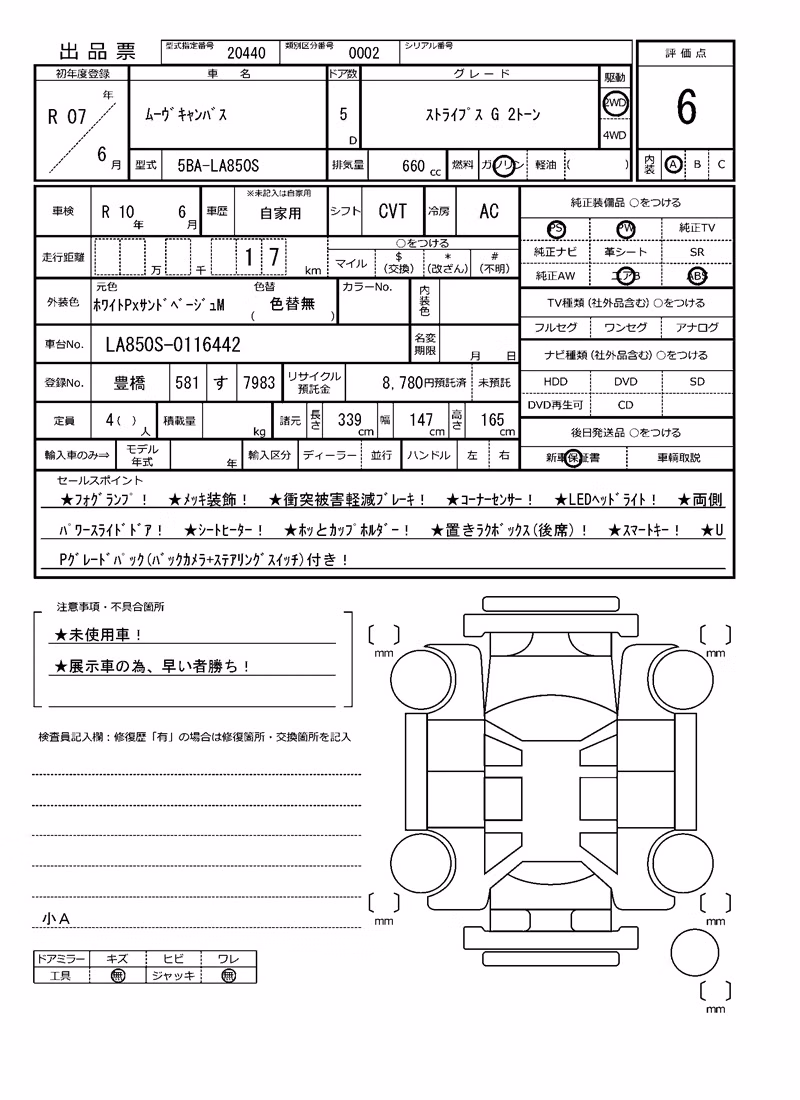 出品票 型式指定番号 20440 類別区分番号 0002 シリアル番号
評価点
6
内装 A B C
初年度登録 車名 ドア数 グレード 駆動
R 07 年 6 月 ムーヴキャンバス 5 D ストライプス G 2トーン 2WD
4WD
型式 5BA-LA850S 排気量 660 cc 燃料 ガソリン 軽油 ( )
車検 R 10 年 6 月 車歴 ※未記入は自家用 自家用 シフト CVT 冷房 AC
走行距離 万 千 1 7 km ○をつける
マイル $(交換) *(改ざん) #(不明)
外装色 元色 色替 カラーNo. 内装色
ホワイトPxサンドベージュM ( 色替無 )
車台No. LA850S-0116442 名変期限 月 日
登録No. 豊橋 581 す 7983 リサイクル預託金 8,780円預託済 未預託
定員 4 ( ) 人 積載量 kg 諸元 長さ 339 cm 幅 147 cm 高さ 165 cm
輸入車のみ⇒ モデル年式 年 輸入区分 ディーラー 並行 ハンドル 左 右
純正装備品 ○をつける
PS PW 純正TV
純正ナビ 革シート SR
純正AW エアB ABS
TV種類(社外品含む)○をつける
フルセグ ワンセグ アナログ
ナビ種類(社外品含む)○をつける
HDD DVD SD
DVD再生可 CD
後日発送品 ○をつける
新車保証書 車輌取説
セールスポイント
★フォグランプ! ★メッキ装飾! ★衝突被害軽減ブレーキ! ★コーナーセンサー! ★LEDヘッドライト! ★両側
パワースライドドア! ★シートヒーター! ★ホッとカップホルダー! ★置きラクボックス(後席)! ★スマートキー! ★U
Pグレードパック(バックカメラ+ステアリングスイッチ)付き!
注意事項・不具合箇所
★未使用車!
★展示車の為、早い者勝ち!
検査員記入欄:修復歴「有」の場合は修復箇所・交換箇所を記入
小A
ドアミラー キズ ヒビ ワレ
工具 無 ジャッキ 無
mm mm
mm mm
mm